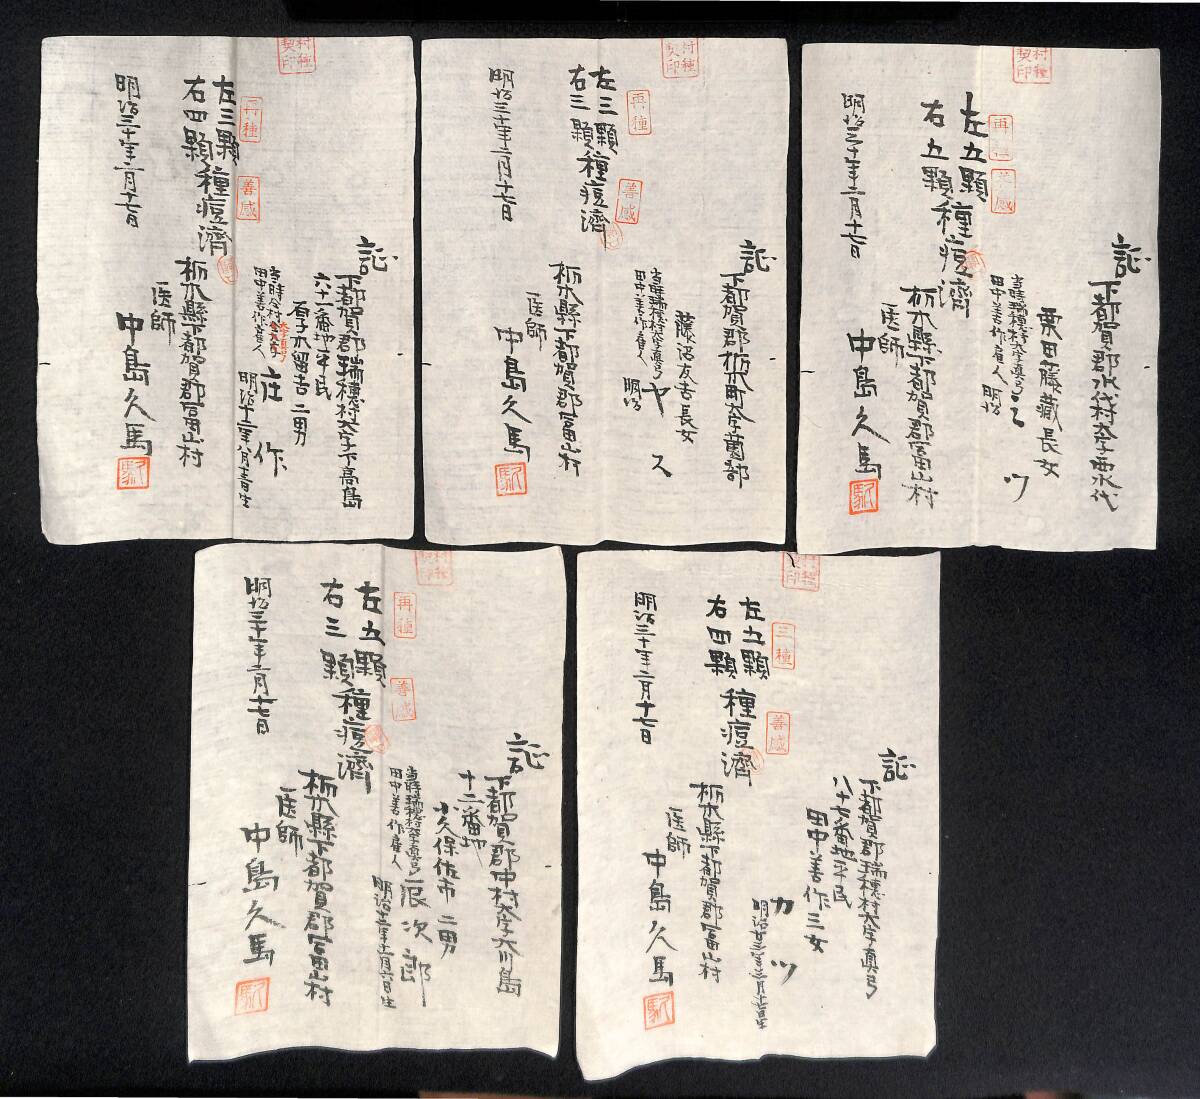 村種
契印
証
下都賀郡瑞穂村大字下高島
六十一番地平民
留吉二男
当時仝村大字真弓
田中善作雇人
庄作
再種
善感
左三顆
右四顆種痘済
明治三十年二月十七日
栃木縣下都賀郡富山村
医師
中島久馬
村種
契印
証
下都賀郡栃木町大字薗部
藤沼友吉長女
当時瑞穂村大字真弓
田中善作雇人
ヤス
明治
再種
善感
左三顆
右三顆種痘済
明治三十年二月十七日
栃木縣下都賀郡富山村
医師
中島久馬
村種
契印
証
下都賀郡水代村大字西水代
栗田藤藏長女
当時瑞穂村大字真弓
田中善作雇人
明治
再種
善感
左五顆
右五顆種痘済
明治三十年二月十七日
栃木縣下都賀郡富山村
医師
中島久馬
村種
契印
証
下都賀郡中村大字大川島
十二番地
小久保佐市二男
当時瑞穂村大字真弓
田中善作雇人
辰次郎
再種
善感
左五顆
右三顆種痘済
明治三十年二月十七日
栃木縣下都賀郡富山村
医師
中島久馬
村種
契印
証
下都賀郡瑞穂村大字真弓
八十六番地平民
田中善作三女
カツ
明治廿三年三月十七日生
三種
善感
左五顆
右四顆種痘済
明治三十年二月十七日
栃木縣下都賀郡富山村
医師
中島久馬